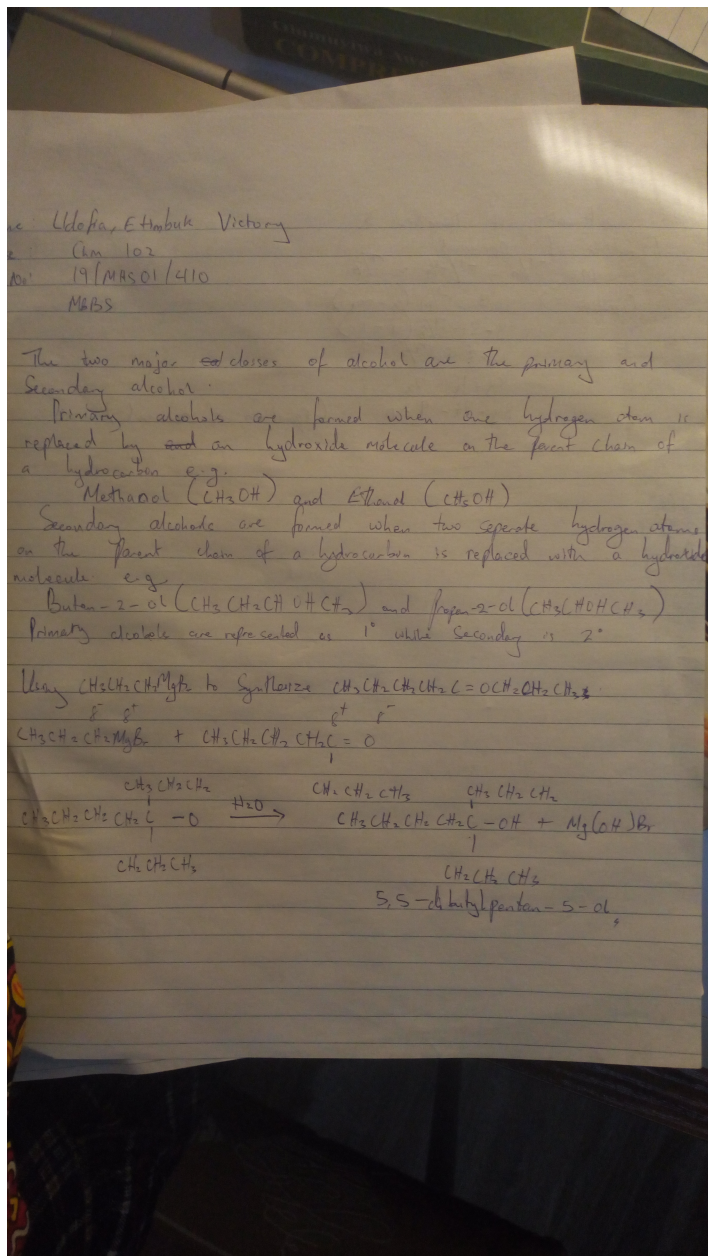 COMPR
Udofia, Etimbuk Victory
Chm 102
19/MHS01/410
MBBS
The two major classes of alcohol are the primary and
Secondary alcohol.
Primary alcohols are formed when one hydrogen atom is
replaced by an hydroxide molecule on the parent chain of
a hydrocarbon e.g.
Methanol (CH3OH) and Ethanol (CH5OH)
Secondary alcohols are formed when two seperate hydrogen atoms
on the parent chain of a hydrocarbon is replaced with a hydroxide
molecule e.g
Butan-2-ol (CH3 CH2CH OH CH3) and Propan-2-ol (CH3CHOHCH3)
Primary alcohols are represented as 1° while Secondary is 2°
Using CH3CH2CH2MgBr to Synthesize CH3CH2CH2CH2C=OCH2CH2CH3.
δ- δ+ δ+ δ-
CH3CH2CH2MgBr + CH3CH2CH2CH2C=O
CH3CH2CH2 CH2CH2CH3 CH3CH2CH2
CH3CH2CH2CH2C-O H2O CH3CH2CH2CH2C-OH + Mg(OH)Br
CH2CH2CH3 CH2CH2CH3
5,5-dibutylpentan-5-ol